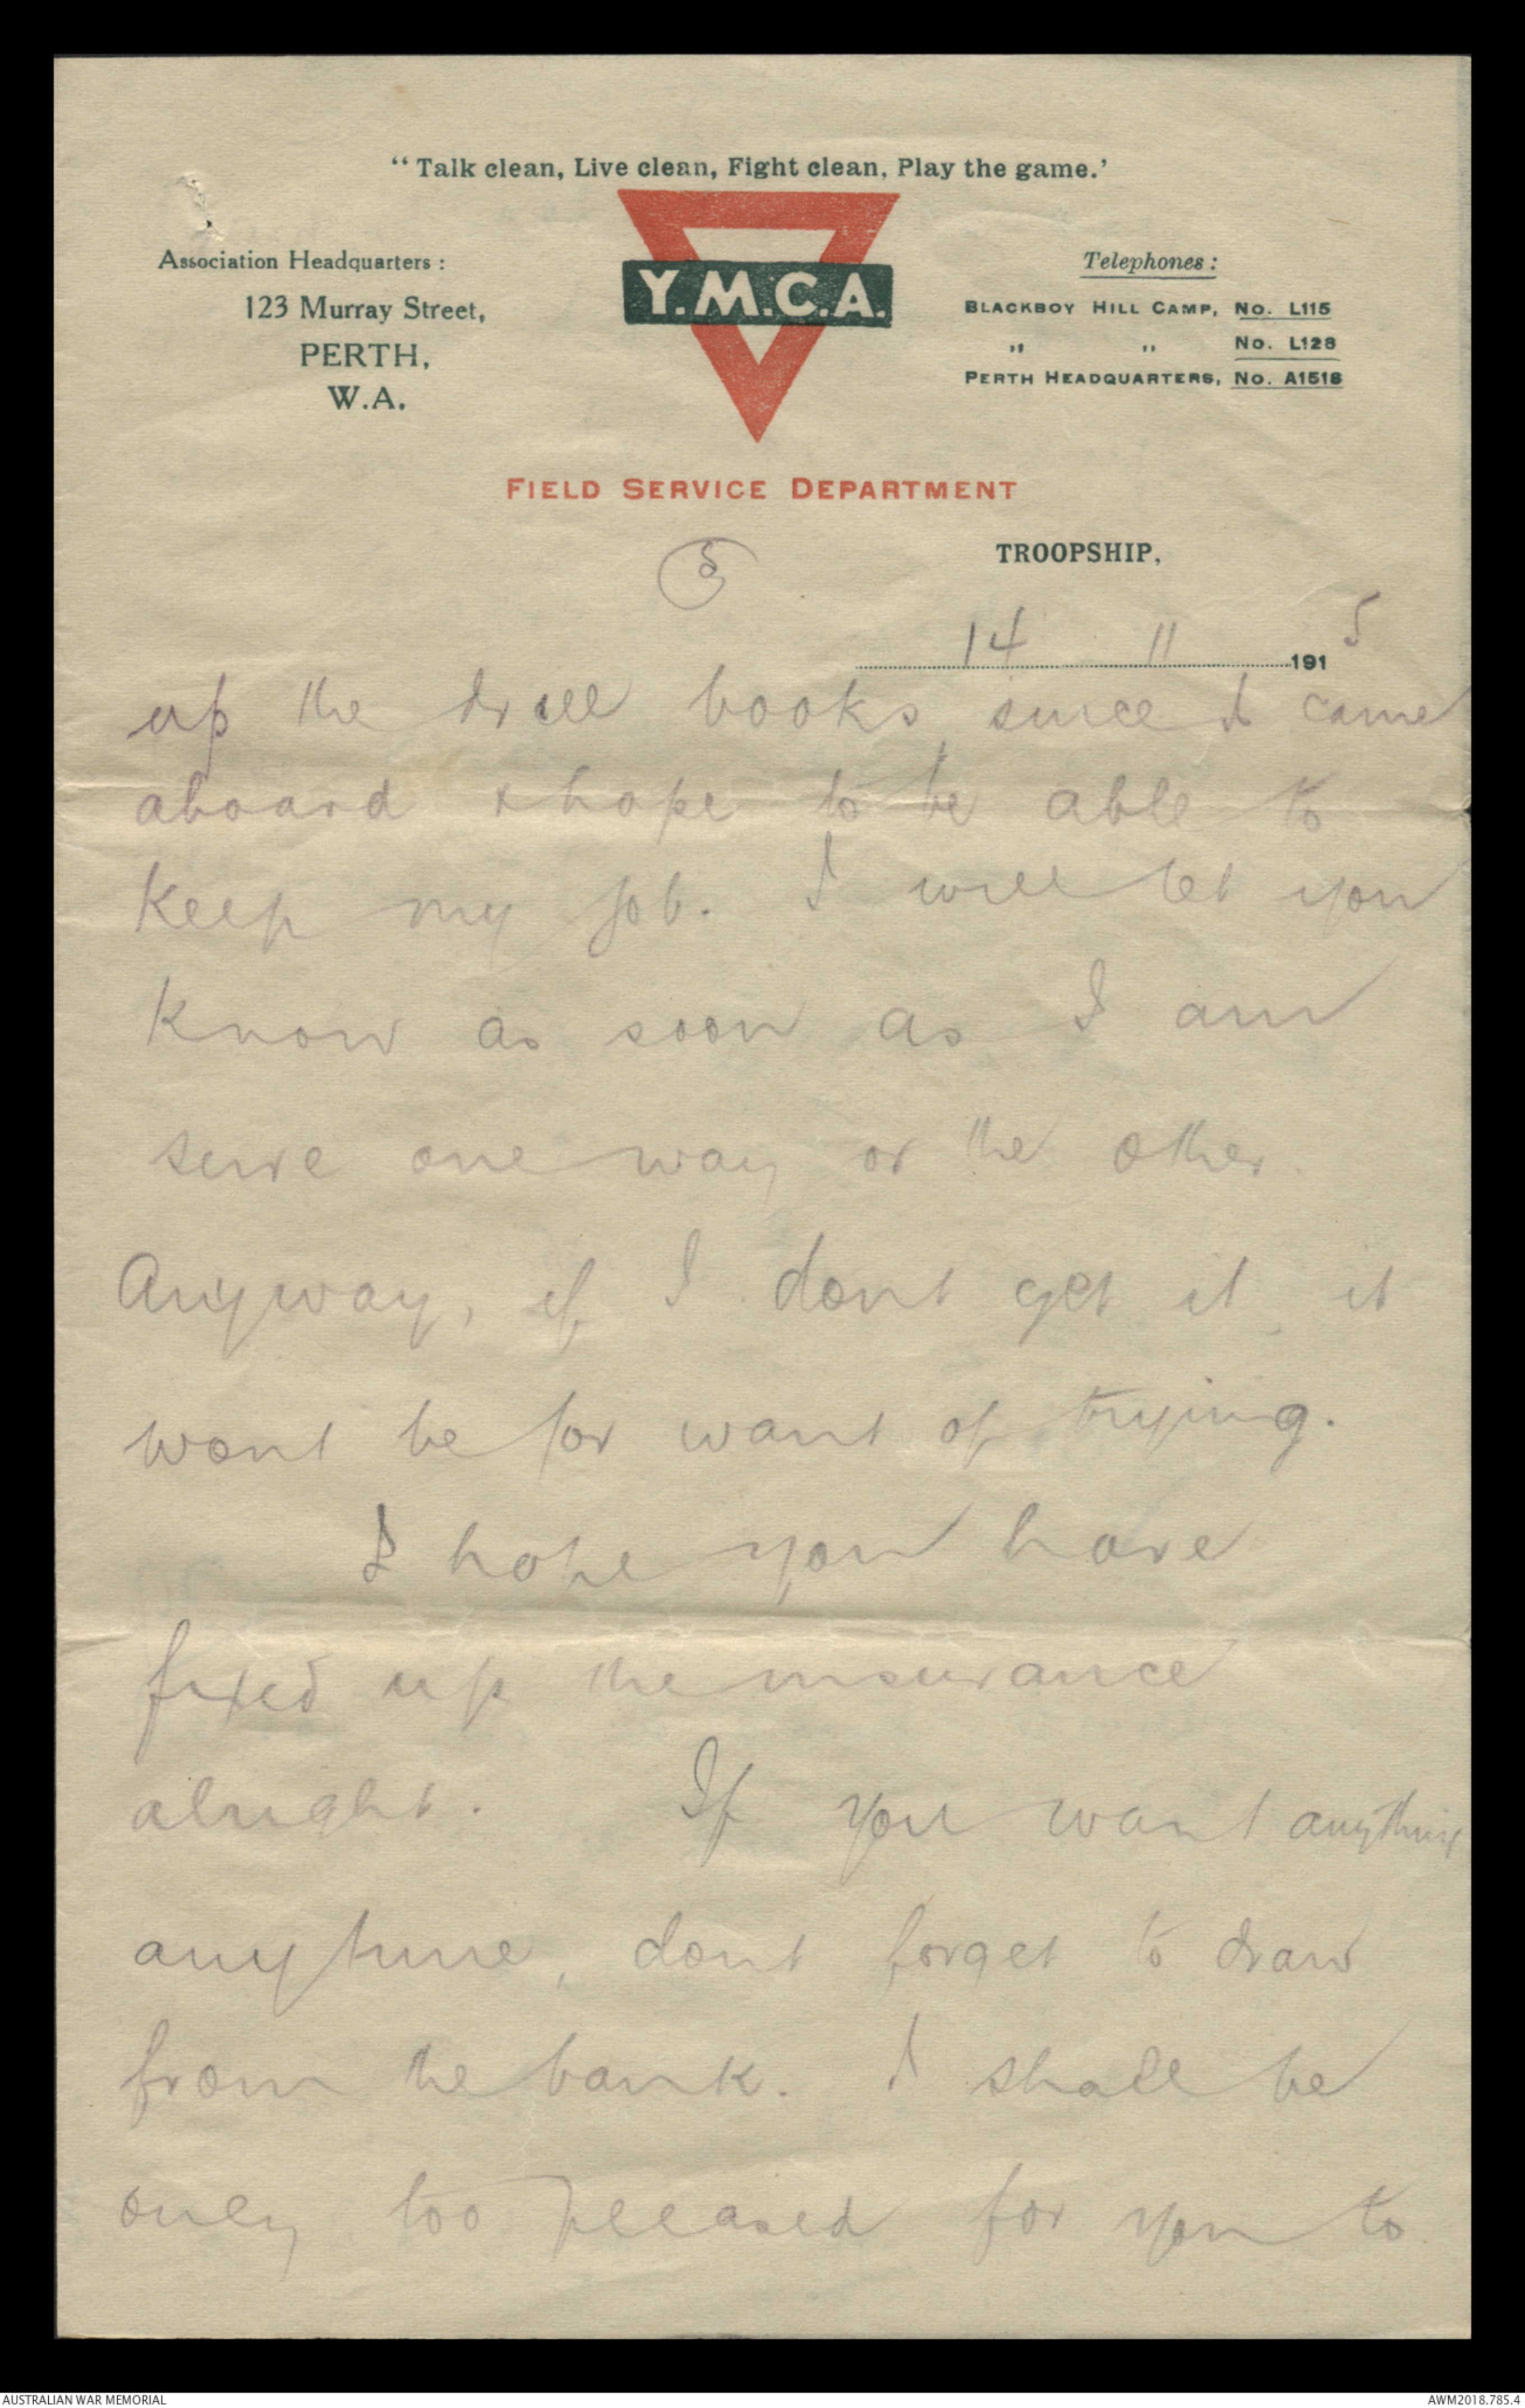 “Talk clean, Live clean, Fight clean, Play the game.’
Association Headquarters :
123 Murray Street,
PERTH,
W.A.
Y.M.C.A.
Telephones :
BLACKBOY HILL CAMP, No. L115
„ „ No. L128
PERTH HEADQUARTERS, No. A1518
FIELD SERVICE DEPARTMENT
5
TROOPSHIP,
14 11 1915
up the drill books since I came
aboard & hope to be able to
keep my job. I will let you
know as soon as I am
sure one way or the other.
Anyway, if I dont get it, it
wont be for want of trying.
I hope you have
fixed up the insurance
alright. If you want anything
anytime, dont forget to draw
from the bank. I shall be
only too pleased for you to
AUSTRALIAN WAR MEMORIAL
AWM2018.785.4